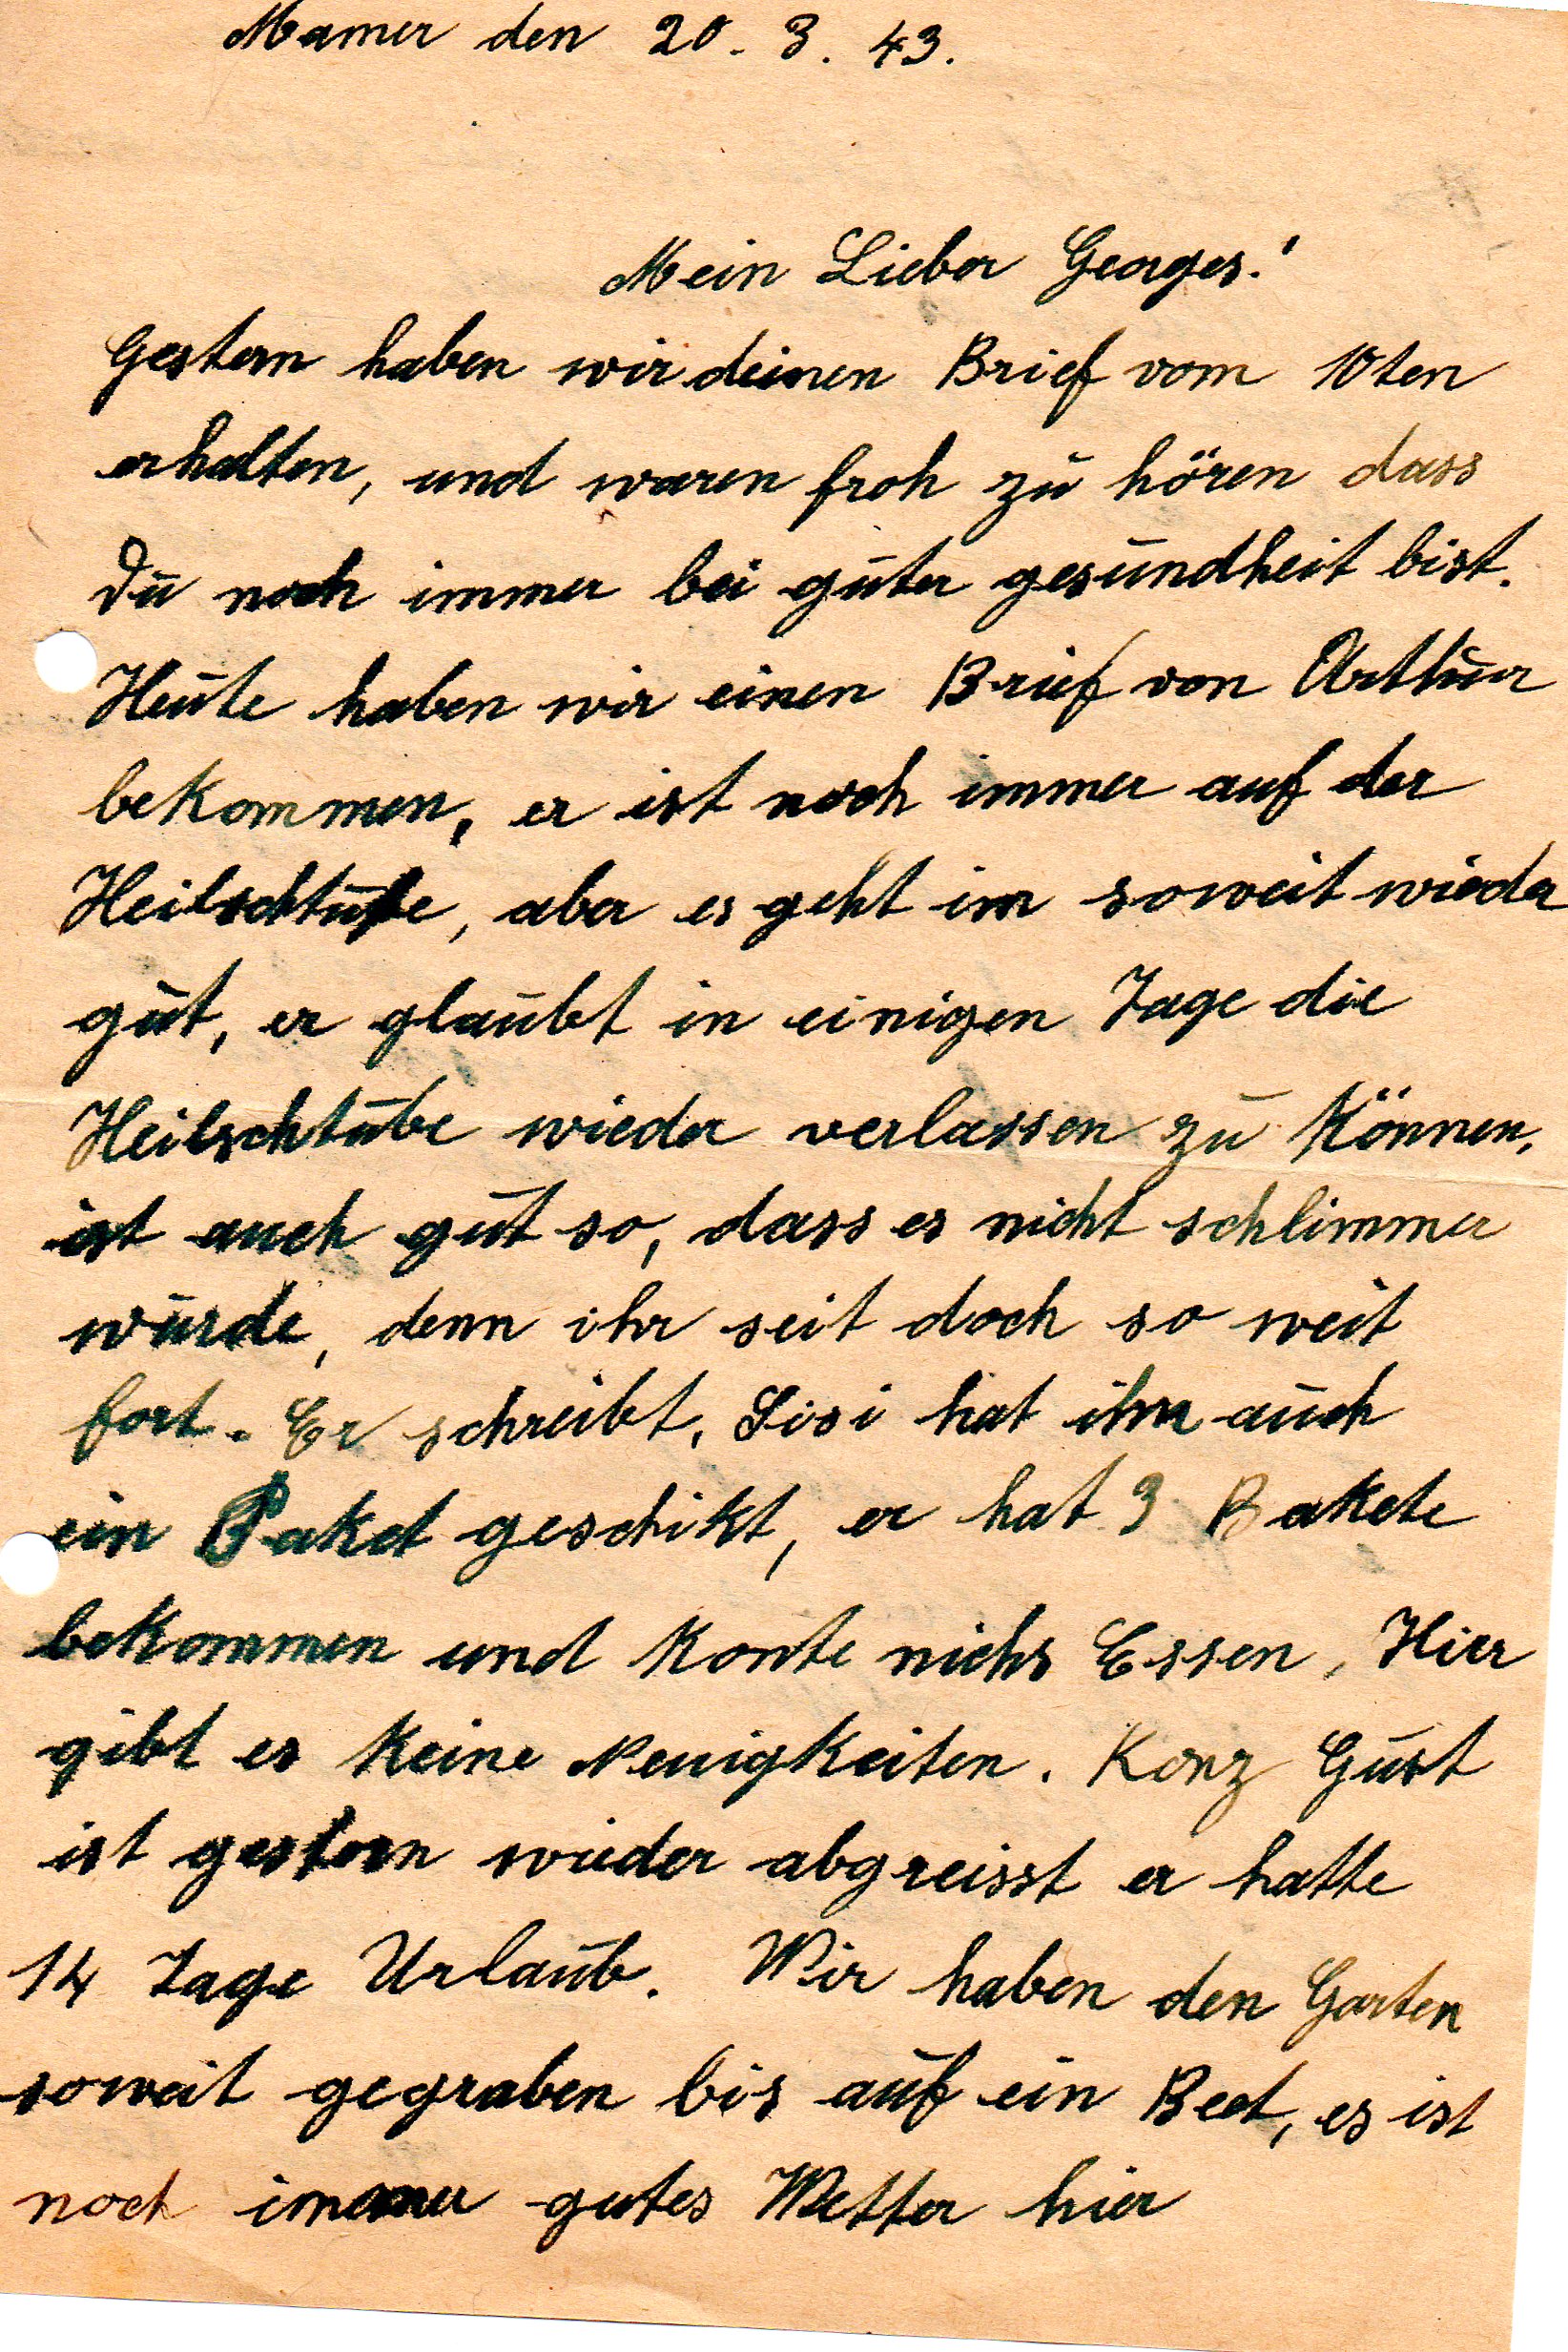 Mamer den 20. 3. 43.
Mein Lieber Georges!
Gestern haben wir deinen Brief vom 10ten
erhalten, und waren froh zu hören dass
du noch immer bei guter gesundheit bist.
Heute haben wir einen Brief von Arthur
bekommen, er ist noch immer auf der
Heilschtube, aber es geht im soweit wieder
gut, er glaubt in einigen Tage die
Heilschtube wieder verlassen zu können,
ist auch gut so, dass es nicht schlimmer
wurde, denn ihr seit doch so weit
fort. Er schreibt, Sisi hat ihm auch
ein Paket geschikt, er hat 3 Bakete
bekommen und konte nichs Essen, Hier
gibt es keine Neuigkeiten. Konz Gust
ist gestern wieder abgreisst er hatte
14 Tage Urlaub. Wir haben den Garten
soweit gegraben bis auf ein Beet, es ist
noch immer gutes Wetter hier